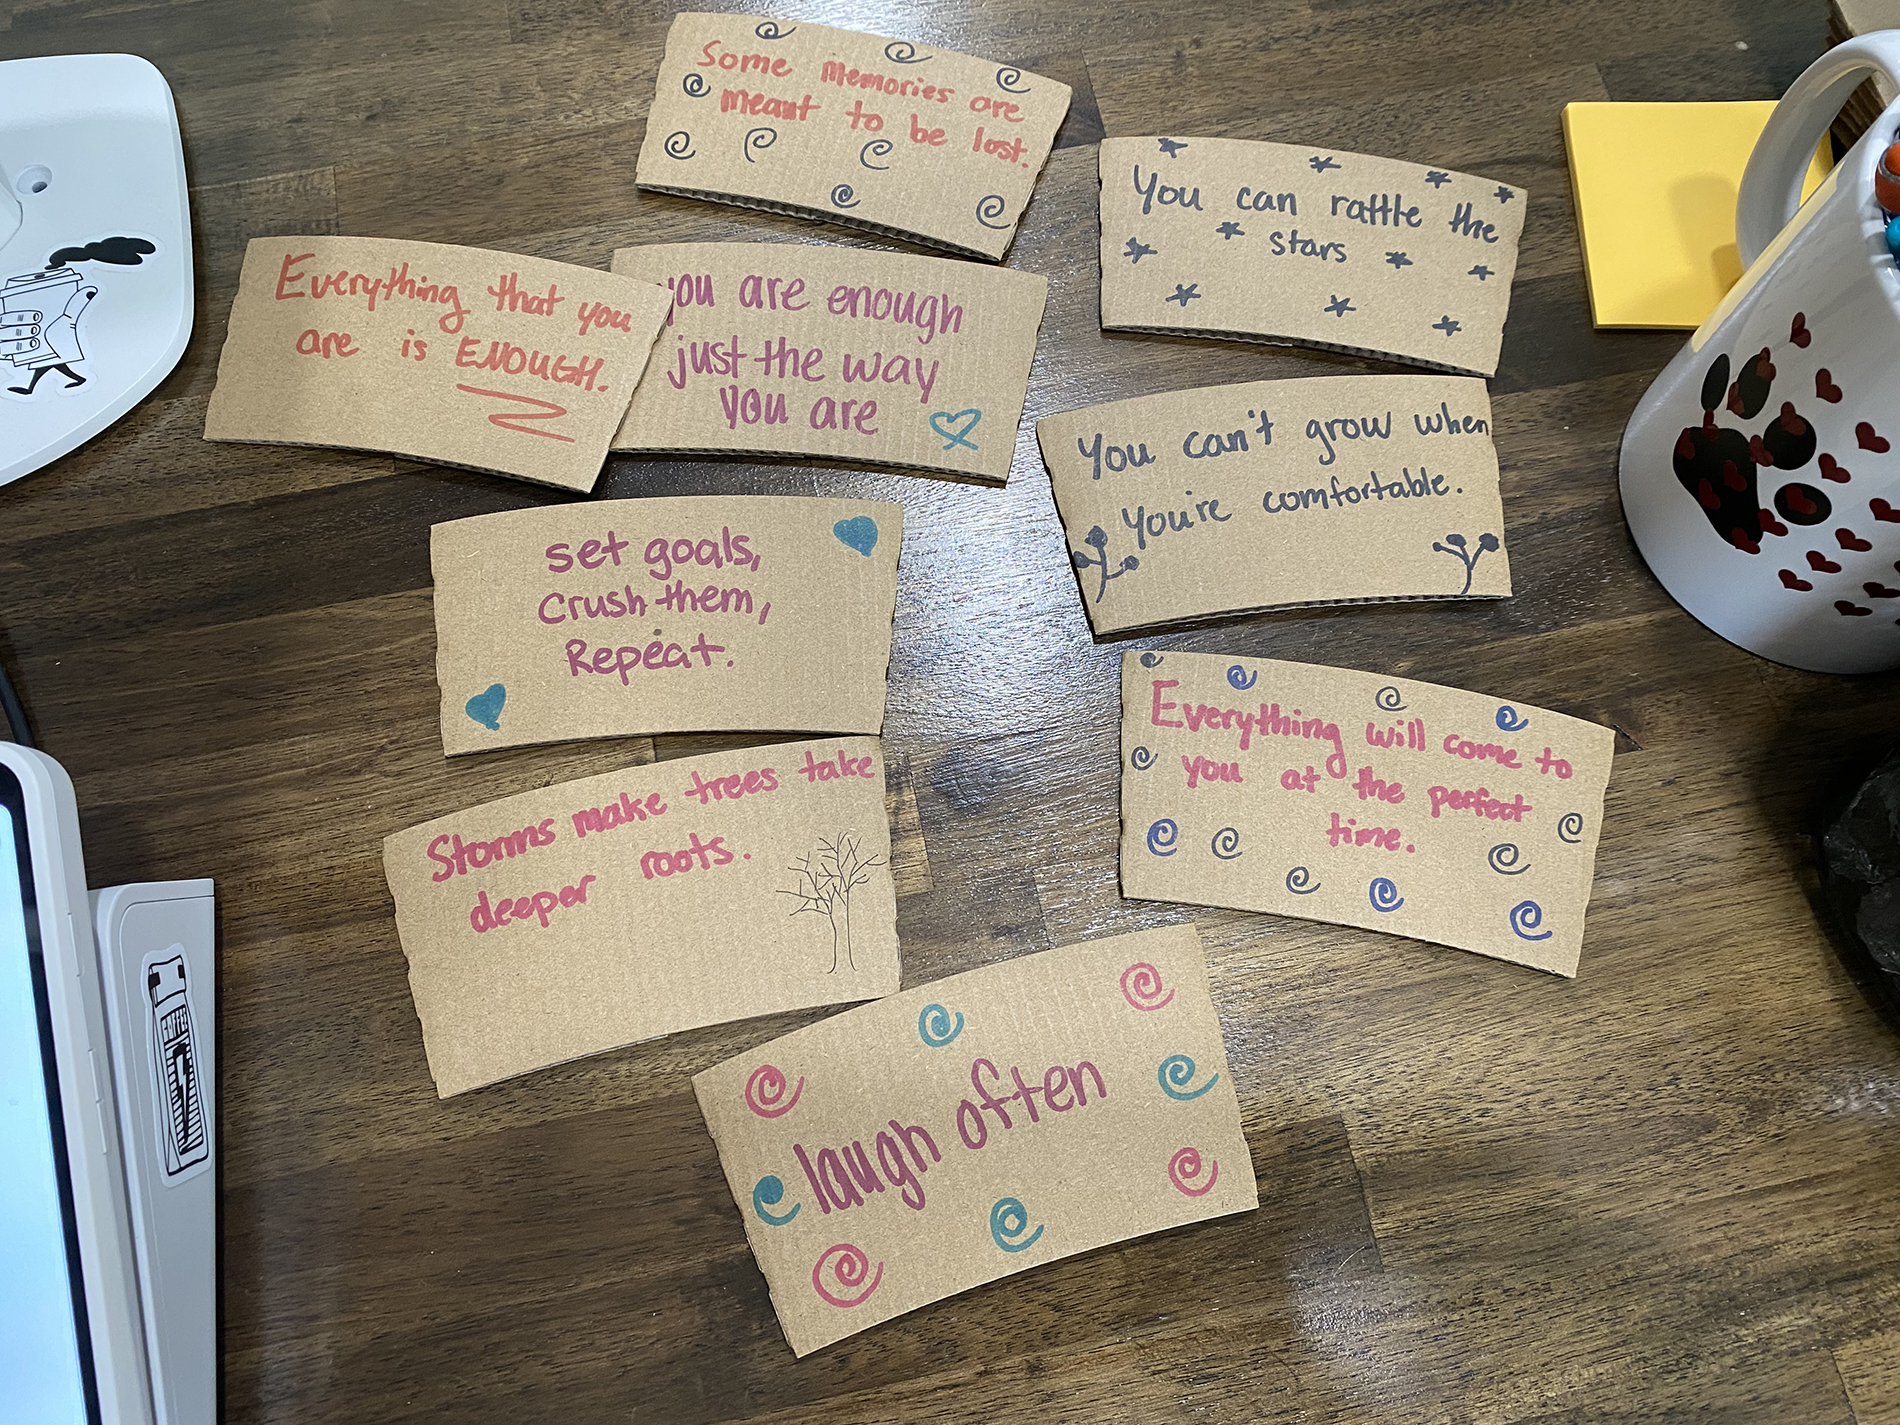 Some memories are
meant to be lost.
You can rattle the
stars
Everything that you
are is ENOUGH.
you are enough
just the way
you are
You can't grow when
you're comfortable.
set goals,
crush them,
Repeat.
Everything will come to
you at the perfect
time.
Storms make trees take
deeper roots.
laugh often
COFFEE